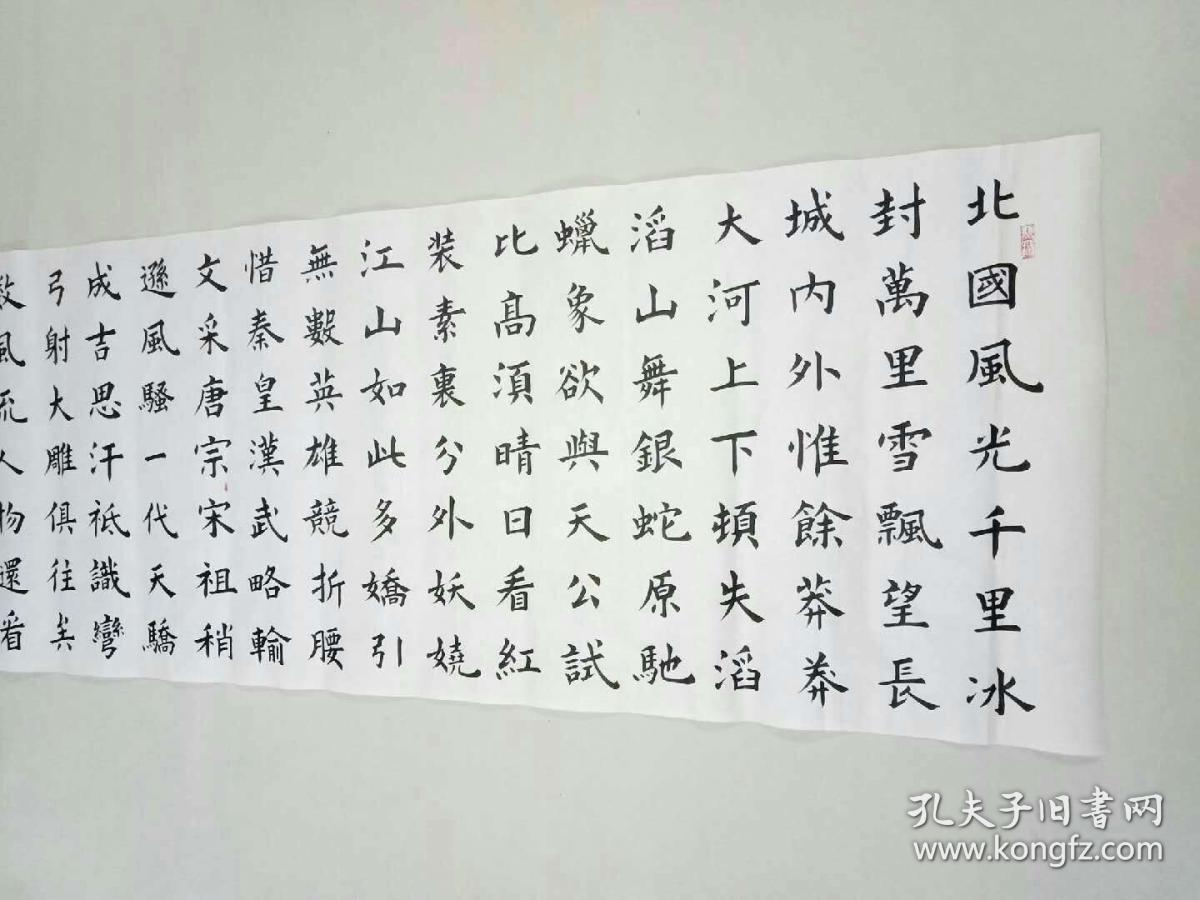 北國風光千里冰
封萬里雪飄望長
城内外惟餘莽莽
大河上下頓失滔
滔山舞銀蛇原馳
蠟象欲與天公試
比高須晴日看紅
装素裏分外妖嬈
江山如此多嬌引
無數英雄競折腰
惜秦皇漢武略輸
文采唐宗宋祖稍
遜風騷一代天驕
成吉思汗祗識彎
弓射大雕俱往矣
數風流人物還看
孔夫子旧书网
www.kongfz.com